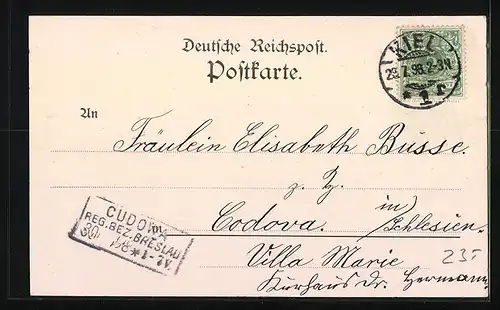 Deutsche Reichspost.
Postkarte.
KIEL
29.7.98.2-3N
* 1 f
An
Fräulein Elisabeth Busse.
z. Z.
in
Codova. Schlesien.
Villa Marie
Kurhaus Dr. Hermann
23,-
CUDOWA
REG. BEZ. BRESLAU
30/ 98 * 1-7V.